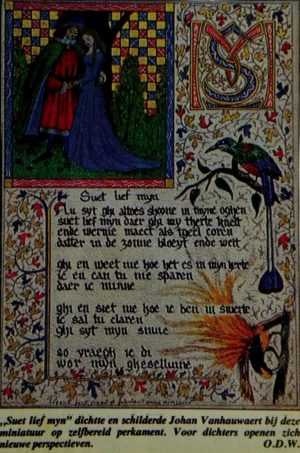 Suet lief myn
Nu syt ghi altoes shoone in myne oghen
suet lief myn daer ghi my therte
ende wernie maect als gheel coren
datter in de zonne bloeyt ende welt
ghi en weet nie hoe het es in myn herte
ic en can tu nie sparen
daer ic minne
ghi en siet nie hoe ic ben in smerte
ic sal tu claren
ghi syt myn sinne
so vraegh ic di
wor myn ghesellinne
„Suet lief myn” dichtte en schilderde Johan Vanhauwaert bij deze
miniatuur op zelfbereid perkament. Voor dichters openen zich
nieuwe perspectieven. O.D.W.